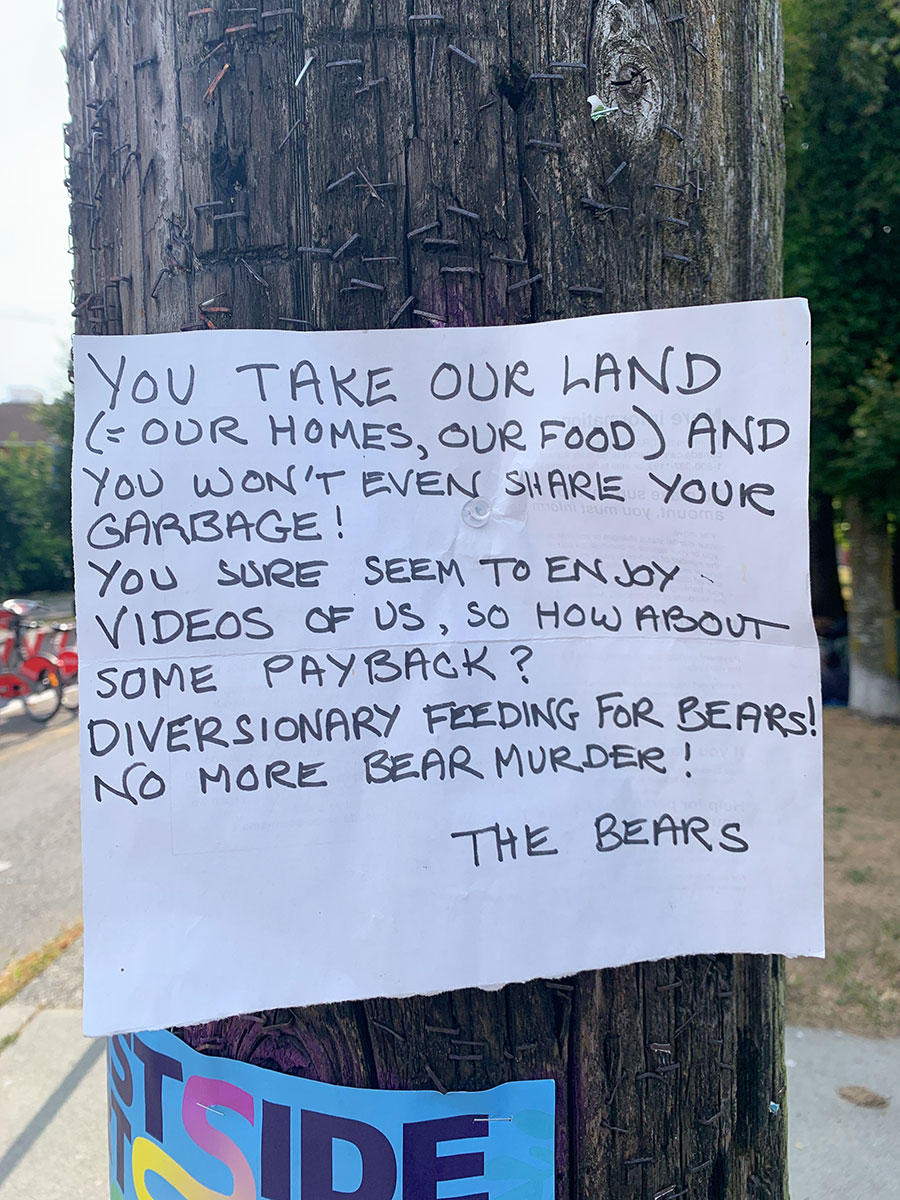 YOU TAKE OUR LAND
(= OUR HOMES, OUR FOOD) AND
YOU WON'T EVEN SHARE YOUR
GARBAGE!
YOU SURE SEEM TO ENJOY
VIDEOS OF US, SO HOW ABOUT
SOME PAYBACK?
DIVERSIONARY FEEDING FOR BEARS!
NO MORE BEAR MURDER!
THE BEARS
STSIDE